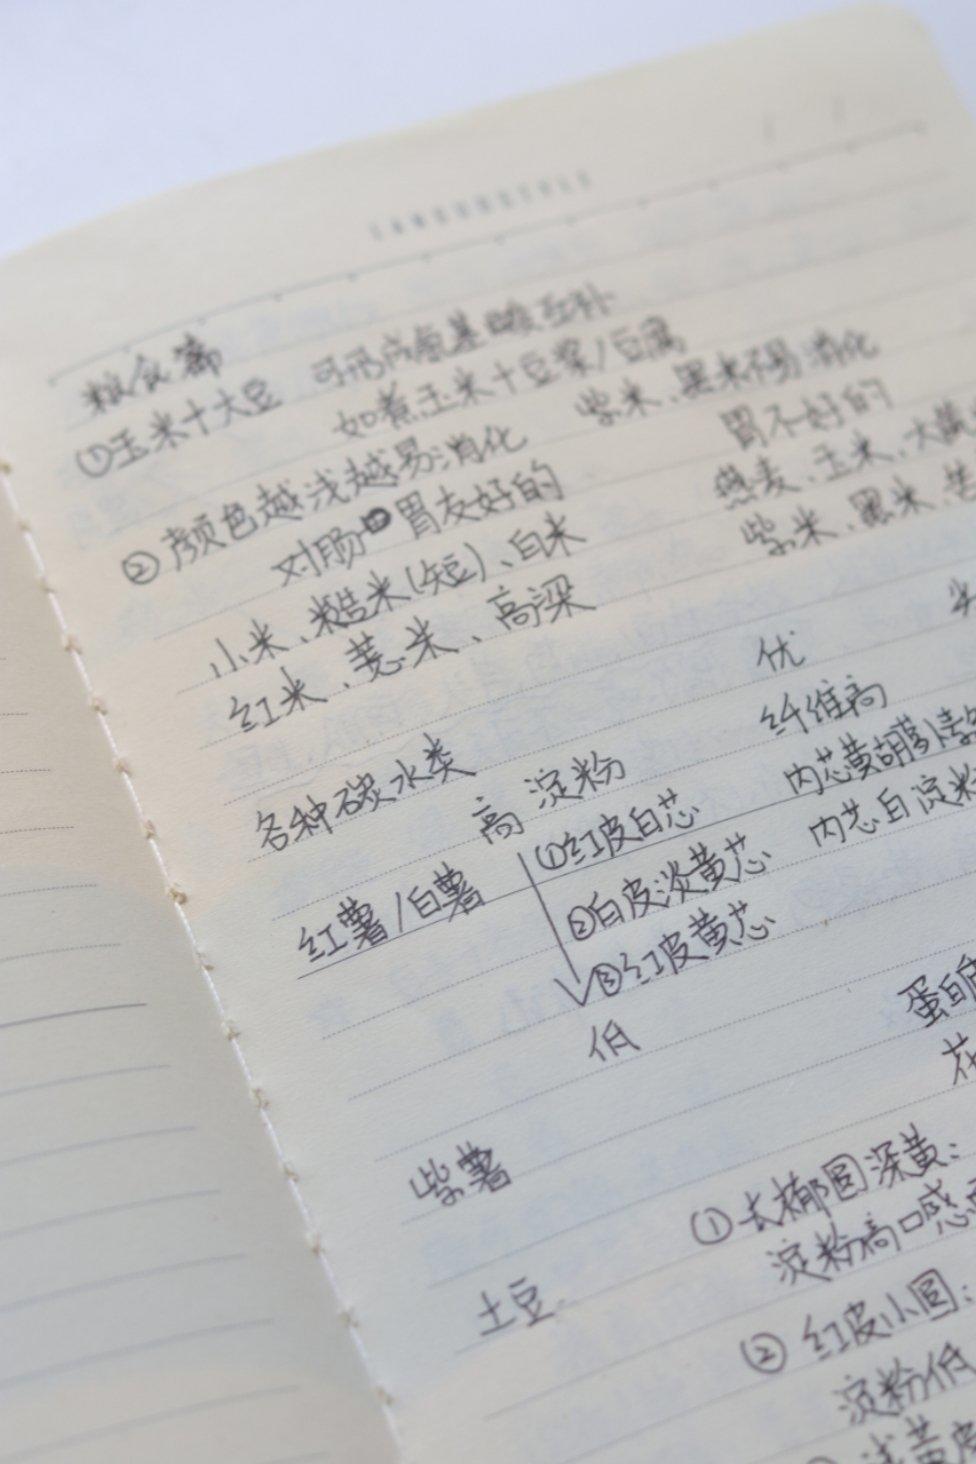 粮食篇
①玉米+大豆 可形成氨基酸互补
如煮玉米+豆浆/豆腐
②颜色越浅越易消化 紫米、黑米不易消化
对肠胃友好的 胃不好的
小米、糙米(短)、白米 燕麦、玉米、大黄
红米、薏米、高粱 紫米、黑米
各种碳水类 优
高 淀粉 纤维高
红薯/白薯 ①红皮白芯 内芯黄胡萝卜素
②白皮淡黄芯 内芯白淀粉
③红皮黄芯
低
蛋白
花
紫薯
土豆 ①长椭圆深黄:
淀粉高口感
②红皮小圆:
淀粉低
浅黄皮